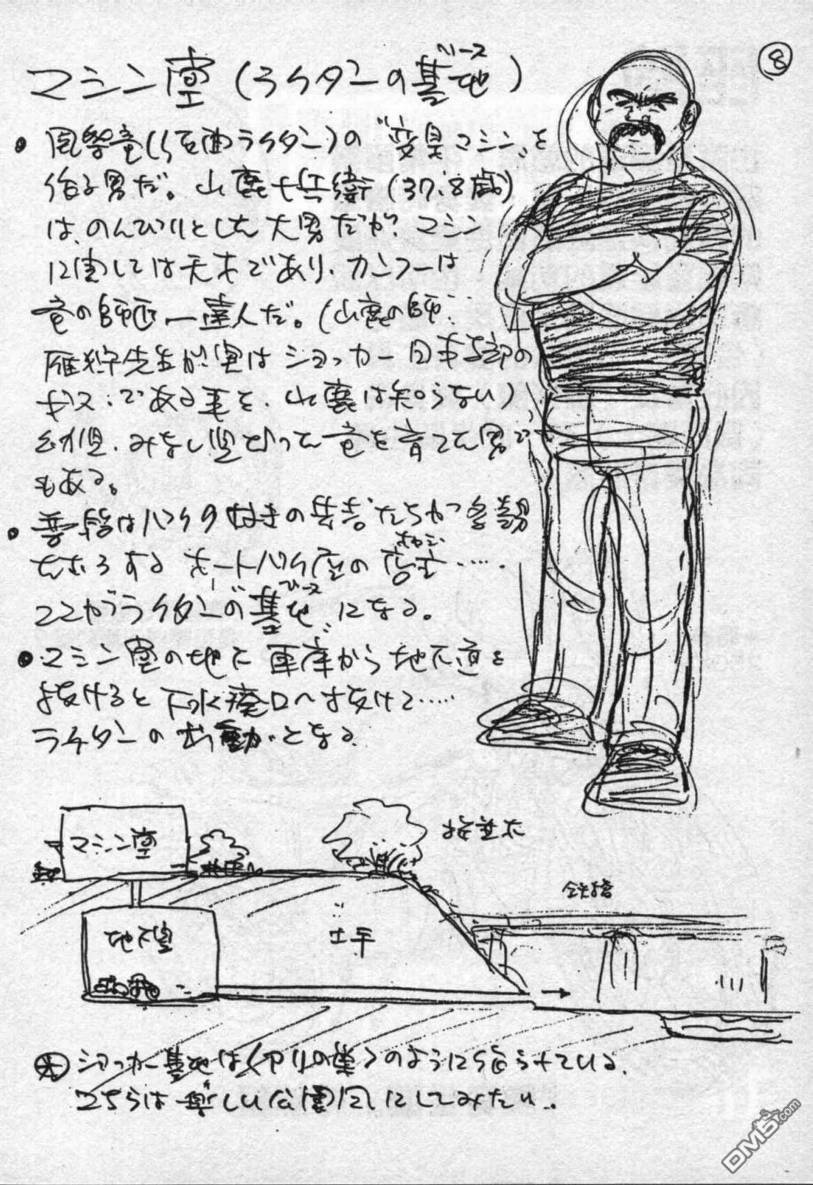 ⑧
マシン堂（ライダーの基地）
ベース
・風 竜（ 面ライダー）の〝変身マシン〟を
作る男だ。山鹿七兵衛（37.8歳）
は、のんびりとした大男だが、マシン
に関しては天才であり、カンフーは
竜の師匠 達人だ。（山鹿の師、
雁 先生が実はショッカー日本 部の
ボス、である事を、山鹿は知らない）
幼児、みなし児だった竜を育てた男で
もある。
・普段はバイク好きの若者たちが
たむろする オートバイ屋の店主……
ココがライダーの〝基地〟になる。
ベース
・マシン堂の地下車庫から地下道を
抜けると下水廃口へ抜けて……
ライダーの出動となる。
マシン堂
地下室
土手
鉄橋
ショッカー基地は〈アリの巣〉のように
こちらは楽しい公園風にしてみたい。
DM5.com